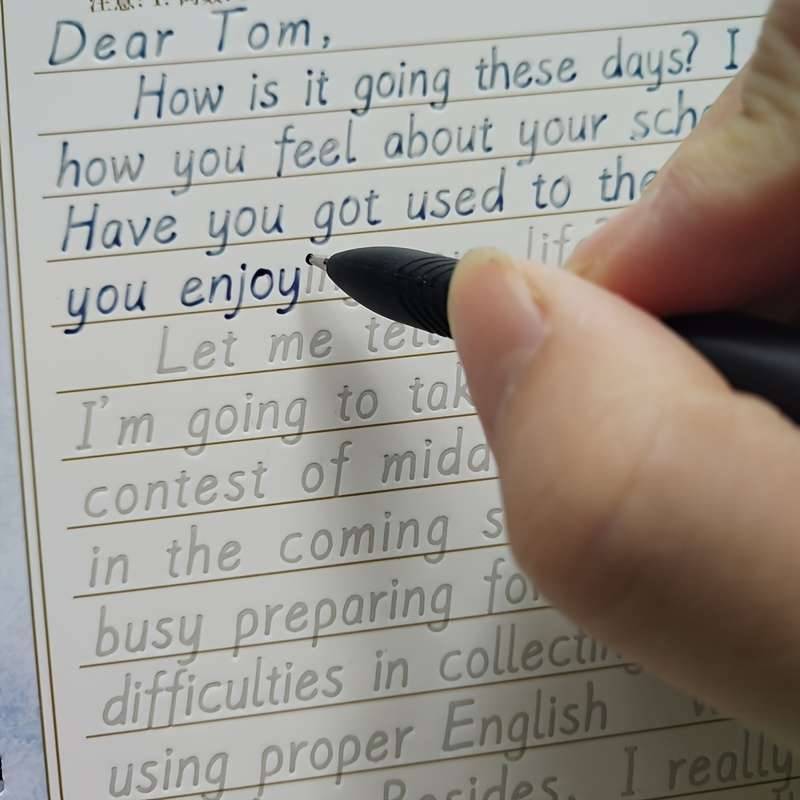 Dear Tom,
How is it going these days? I
how you feel about your
Have you got used to
you enjoy
Let me tell
I'm going to
contest of
in the coming
busy preparing
difficulties in
using proper English
I really